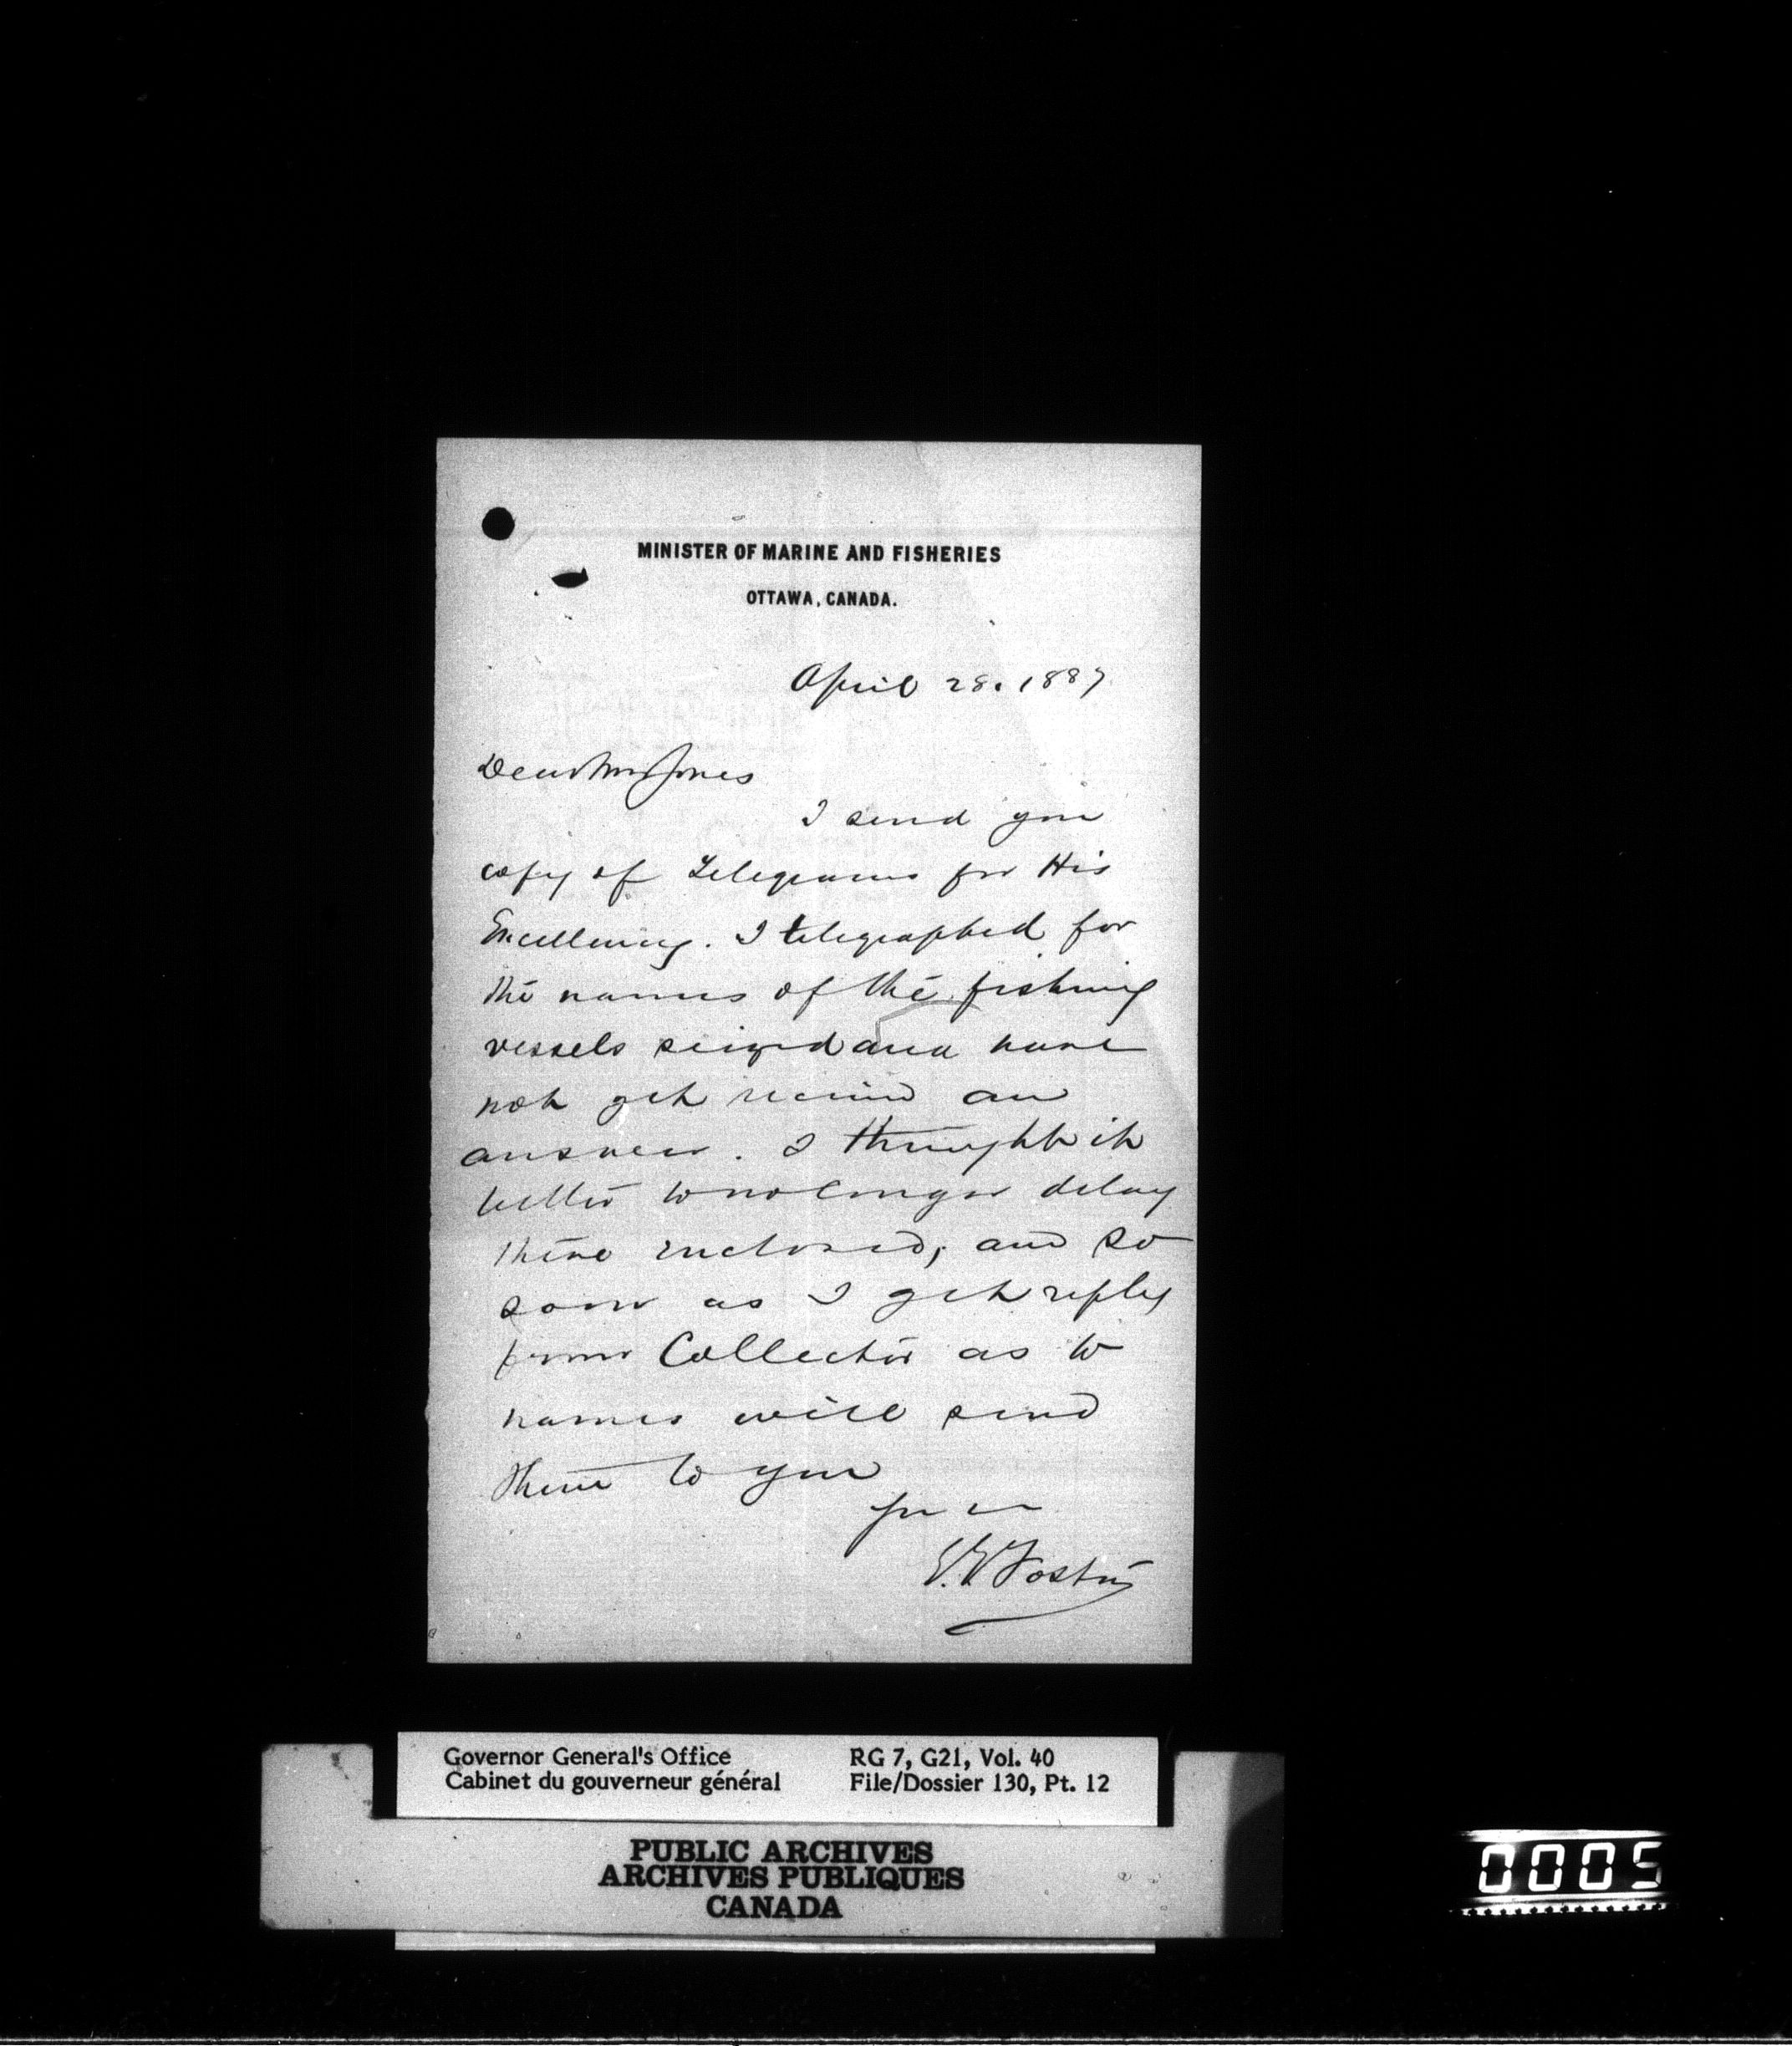 MINISTER OF MARINE AND FISHERIES
OTTAWA, CANADA.
April 28. 1887
Dear Mr Jones
I send you
copy of Telegrams for His
Excellency. I telegraphed for
the names of the fishing
vessels seized and have
not yet received an
answer. I thought it
better to no longer delay
these enclosed, and so
soon as I get reply
from Collector as to
names will send
them to you
G. E. Foster
Governor General's Office
Cabinet du gouverneur général
RG 7, G21, Vol. 40
File/Dossier 130, Pt. 12
PUBLIC ARCHIVES
ARCHIVES PUBLIQUES
CANADA
0005